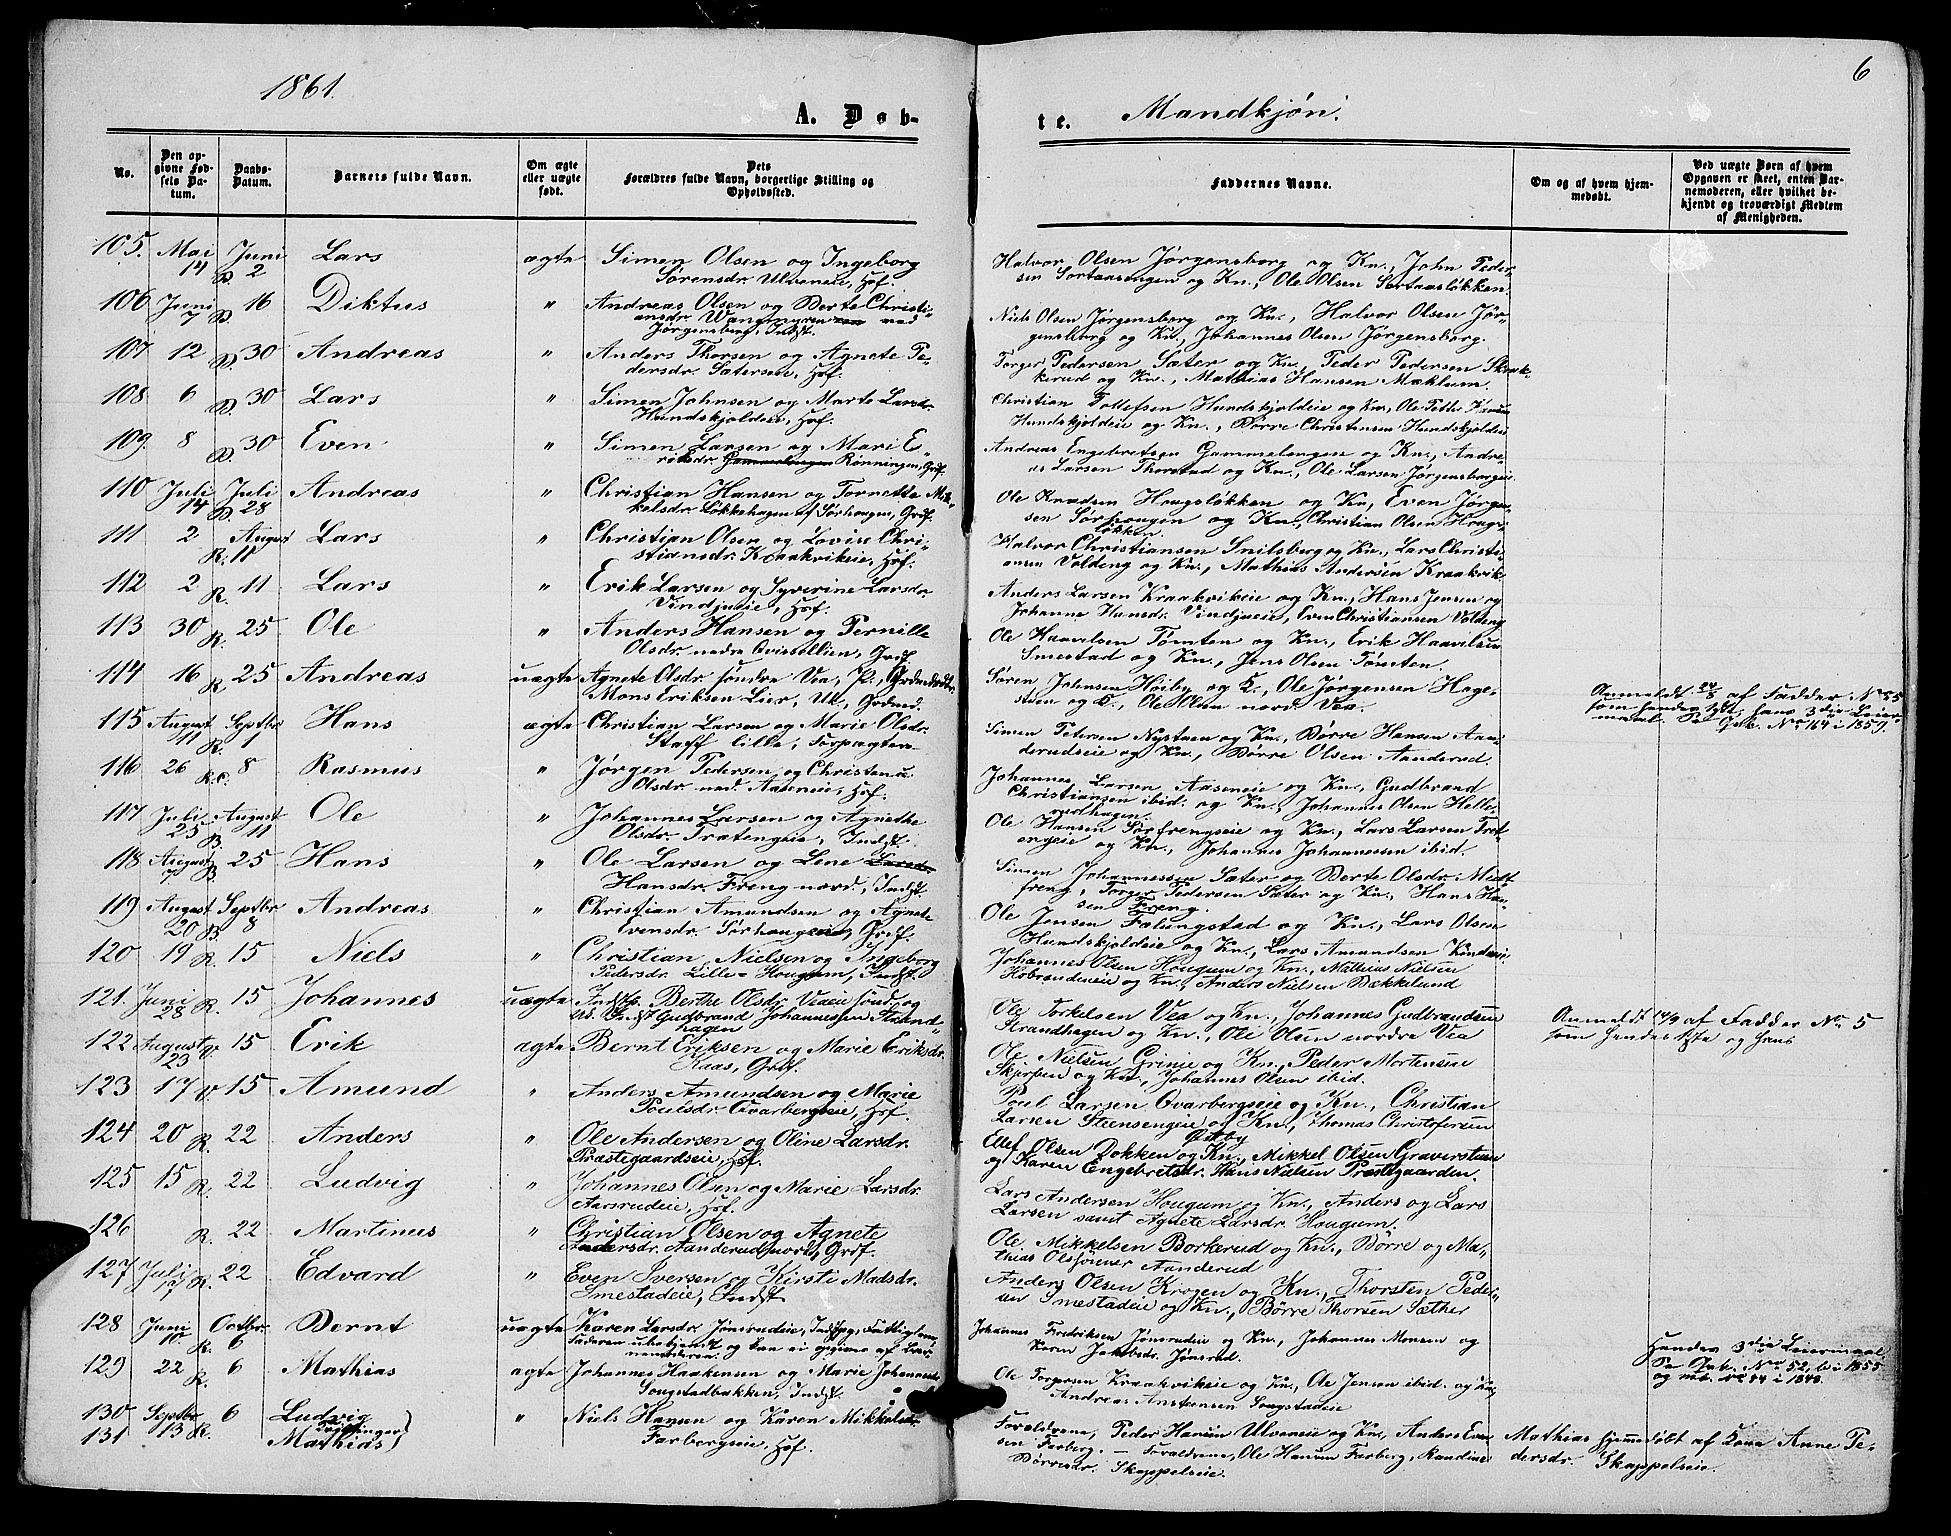 1861.
A. Døb-
te. Mandkjøn.
6
No.
Den op-
givne Fød-
sels Da-
tum.
Daabs-
Datum.
Barnets fulde Navn.
Om ægte
eller uægte
født.
Dets
Forældres fulde Navn, borgerlige Stilling og
Opholdssted.
Faddernes Navne.
Om og af hvem hjem-
medøbt.
Ved uægte Børn af hvem
Opgaven er skeet, enten Bar-
nemoderen, eller hvilket be-
kjendt og troværdigt Medlem
af Menigheden.
105. Mai 14 Juni 2 Lars ægte Simen Olsen og Ingeborg
Sørensdr. Ulveneie, Hsf.
Halvor Olsen Jørgensborg og Kn., John Peder-
sen Sortaasengen og Kn., Ole Olsen Sortaasløkken.
106 Juni 7 16 Diktus " Andreas Olsen og Berte Christi-
ansdr. Wangmyren ned
Jørgensborg, Indst.
Niels Olsen Jørgensborg og Kn., Halvor Olsen Jør-
gensborg og Kn., Johannes Olsen Jørgensborg.
107 12 30 Andreas " Anders Thorsen og Agnete Pe-
dersdr. Sæterseie, Hsf.
Torger Pedersen Sæter og Kn. Peder Pedersen Skræk-
kerud og Kn., Mathias Hansen Mæhlum.
108 6 30 Lars " Simen Johnsen og Marte Larsdr.
Hundskjoldeie, Hsf.
Christian Tollefsen Hundskjoldeie og Kn., Ole
Hundskjoldeie og Kn., Børre Christensen Hundskjoldeie
109. 8 30 Even " Simen Larsen og Mari E-
riksdr. Gammelengen Rønningen, Grdf.
Andreas Engebretsen Gammelengen og Kn., Andre-
as Larsen Thorsrud og Kn., Ole Larsen Jørgensborgeie.
110 Juli 14 Juli 28 Andreas " Christian Hansen og Tornette Mik-
kelsdr. Løkkehagen af Sørhougen, Grdf.
Ole Knudsen Hougsløkken og Kn, Even Jørgen-
sen Sørhougen og Kn., Christian Olsen Hougs-
løkken.
111 2 August 11 Lars " Christian Olsen og Lovise Chri-
stiansdr. Kraakvikeie, Hsf.
Halvor Christiansen Snilsberg og Kn., Lars Christi-
ansen Voldeng og Kn., Mathias Andersen Kraakvik
112 2 R. 11 Lars " Erik Larsen og Syverine Larsdr
Vindjueie, Hsf.
Anders Larsen Kraakvikeie og Kn., Hans Jensen og
Johanne Hansdr. Vindjueie, Even Christiansen Voldeng
113 30 R. 25 Ole " Anders Hansen og Pernille
Olsdr. nedre Qvistillien, Grdf.
Ole Haavelsen Tømten og Kn., Erik Haavelsen
Smestad og Kn., Jens Olsen Tømten.
114 16 R. 25 Andreas uægte Agnete Olsdr. søndre Vea, P.,
Mons Eriksen Lier, Uk., Grdmd.
Søren Johnsen Høiby og K., Ole Jørgensen Hage-
steen og K., Ole Olsen nord. Vea.
Anmeldt 24/8 af Fadder No 5
som hendes 1ste, hans 3die Leier-
maal. Se No 164 i 1859.
115 August 11 Septbr. 1 R. Hans ægte Christian Larsen og Marie Olsdr.
Staff lille, Forpagter.
Simen Petersen Nystuen og Kn., Børre Hansen Aan-
derudseie og Kn., Børre Olsen Aanderud.
116 26 8 Rasmus " Jørgen Pedersen og Christena
Olsdr. ned. Aaseneie, Hsf.
Johannes Larsen Aaseneie og Kn., Gudbrand
Christiansen ibid. og Kn., Johannes Olsen Helle-
rudhagen.
117 Juli 25 August 11 Ole " Johannes Larsen og Agnethe
Olsdr. Trætengeie, Indst.
Ole Hansen Sørfrengseie og Kn., Lars Larsen Træt-
engeie og Kn., Johannes Johannessen ibid.
118 August 7 25 Hans " Ole Larsen og Lene Larsdr.
Hansdr. Freng nord., Indst.
Simen Johannessen Sæter og Berte Olsdr. Midt-
freng, Torger Pedersen Sæter og Kn., Hans Han-
sen Freng.
119 August 20 Septbr 8 Andreas " Christian Amundsen og Agnete
Evensdr. Sørhougen, Grdf.
Ole Jensen Falungstad og Kn., Lars Olsen
Hundskjoldeie og Kn., Lars Amundsen
120 19 R. 15 Niels " Christian Nielsen og Ingeborg
Pedersdr. Lille-Hougum, Indst.
Johannes Olsen Hougum og Kn., Mathias Nielsen
Høbrændeneie og Kn., Anders Nielsen Bekkelund
121. Juni 28 R. 15 Johannes uægte Berthe Olsdr. Veaeie sønd. og
Gudbrand Johannessen Strand-
hagen
Ole Torkelsen Vea og Kn., Johannes Gudbrandsen
Strandhagen og Kn., Ole Olsen nordre Vea
Anmeldt 14/9 af Fadder No 5
som hendes 1ste og hans
122 August 23 15 Erik ægte Bernt Eriksen og Marie Eriksdr.
Kaas, Grdf.
Ole Nielsen Grinie og Kn., Peder Mortensen
Skjerpen og Kn., Johannes Olsen ibid.
123 17 15 Amund " Anders Amundsen og Marie
Poulsdr. Qvarbergseie, Hsf.
Poul Larsen Qvarbergseie og Kn., Christian
Larsen Steensengeie og Kn., Thomas Christofersen
124 20 R. 22 Anders " Ole Andersen og Oline Larsdr.
Præstegaardseie, Hsf.
Ellef Olsen Dokken og Kn., Mikkel Olsen Graversteen
og Karen Engebretsdr. Hans Nielsen Præstegaarden.
125 15 R. 22 Ludvig " Johannes Olsen og Marie Larsdr.
Aarsrudeie, Hsf.
Lars Andersen Hougum og Kn., Anders og Lars
Larsen samt Agnete Larsdr. Hougum.
126 R. 22 Martinus " Christian Olsen og Agnete
Andersdr. Aanderud nord., Grdf.
Ole Mikkelsen Borkerud og Kn., Børre og Ma-
thias Olssønner Aanderud
127 Juli 17 R. 22 Edvard " Even Iversen og Kirsti Madsdr.
Smestadeie, Indst
Anders Olsen Krogen og Kn., Thorsten Peder-
sen Smestadeie og Kn., Børre Thorsen Sæther
128 Juni 10 Octbr. 6 R. Bernt uægte Karen Larsdr. Jønsrudeie, Indstpg., Fattiglem,
Faderen ubekjendt og kan ei opgives af Bar-
nemoderen.
Johannes Fredriksen Jønsrudeie og Kn., Johannes Monsen og
Karen Jakobsdr. Jønsrud.
Hendes 3die Leiermaal
Se No 52, b i 1855
og No 44 i 1848.
129 22 R. 6 Mathias ægte Johannes Haakensen og Marie Johannesdr.
Songstadbakken, Indst.
Ole Torgersen Kraakvikeie og Kn., Ole Jensen ibid. og Kn.,
Andreas Anstensen Songstadeie
130 Septbr. 13 R. 6 Ludvig
131 Mathias Tvillinger " Niels Hansen og Karen Mikkelsdr.
Farbergseie, Hsf.
Forældrene, Peder Hansen Ulveneie og Kn., Anders Even-
sen Farberg. — Forældrene, Ole Hansen Farberg, Randine
Børresdr. Skappelseie.
Mathias hjemmedøbt af Kone Anne Pe-
dersdr. Skappelseie.